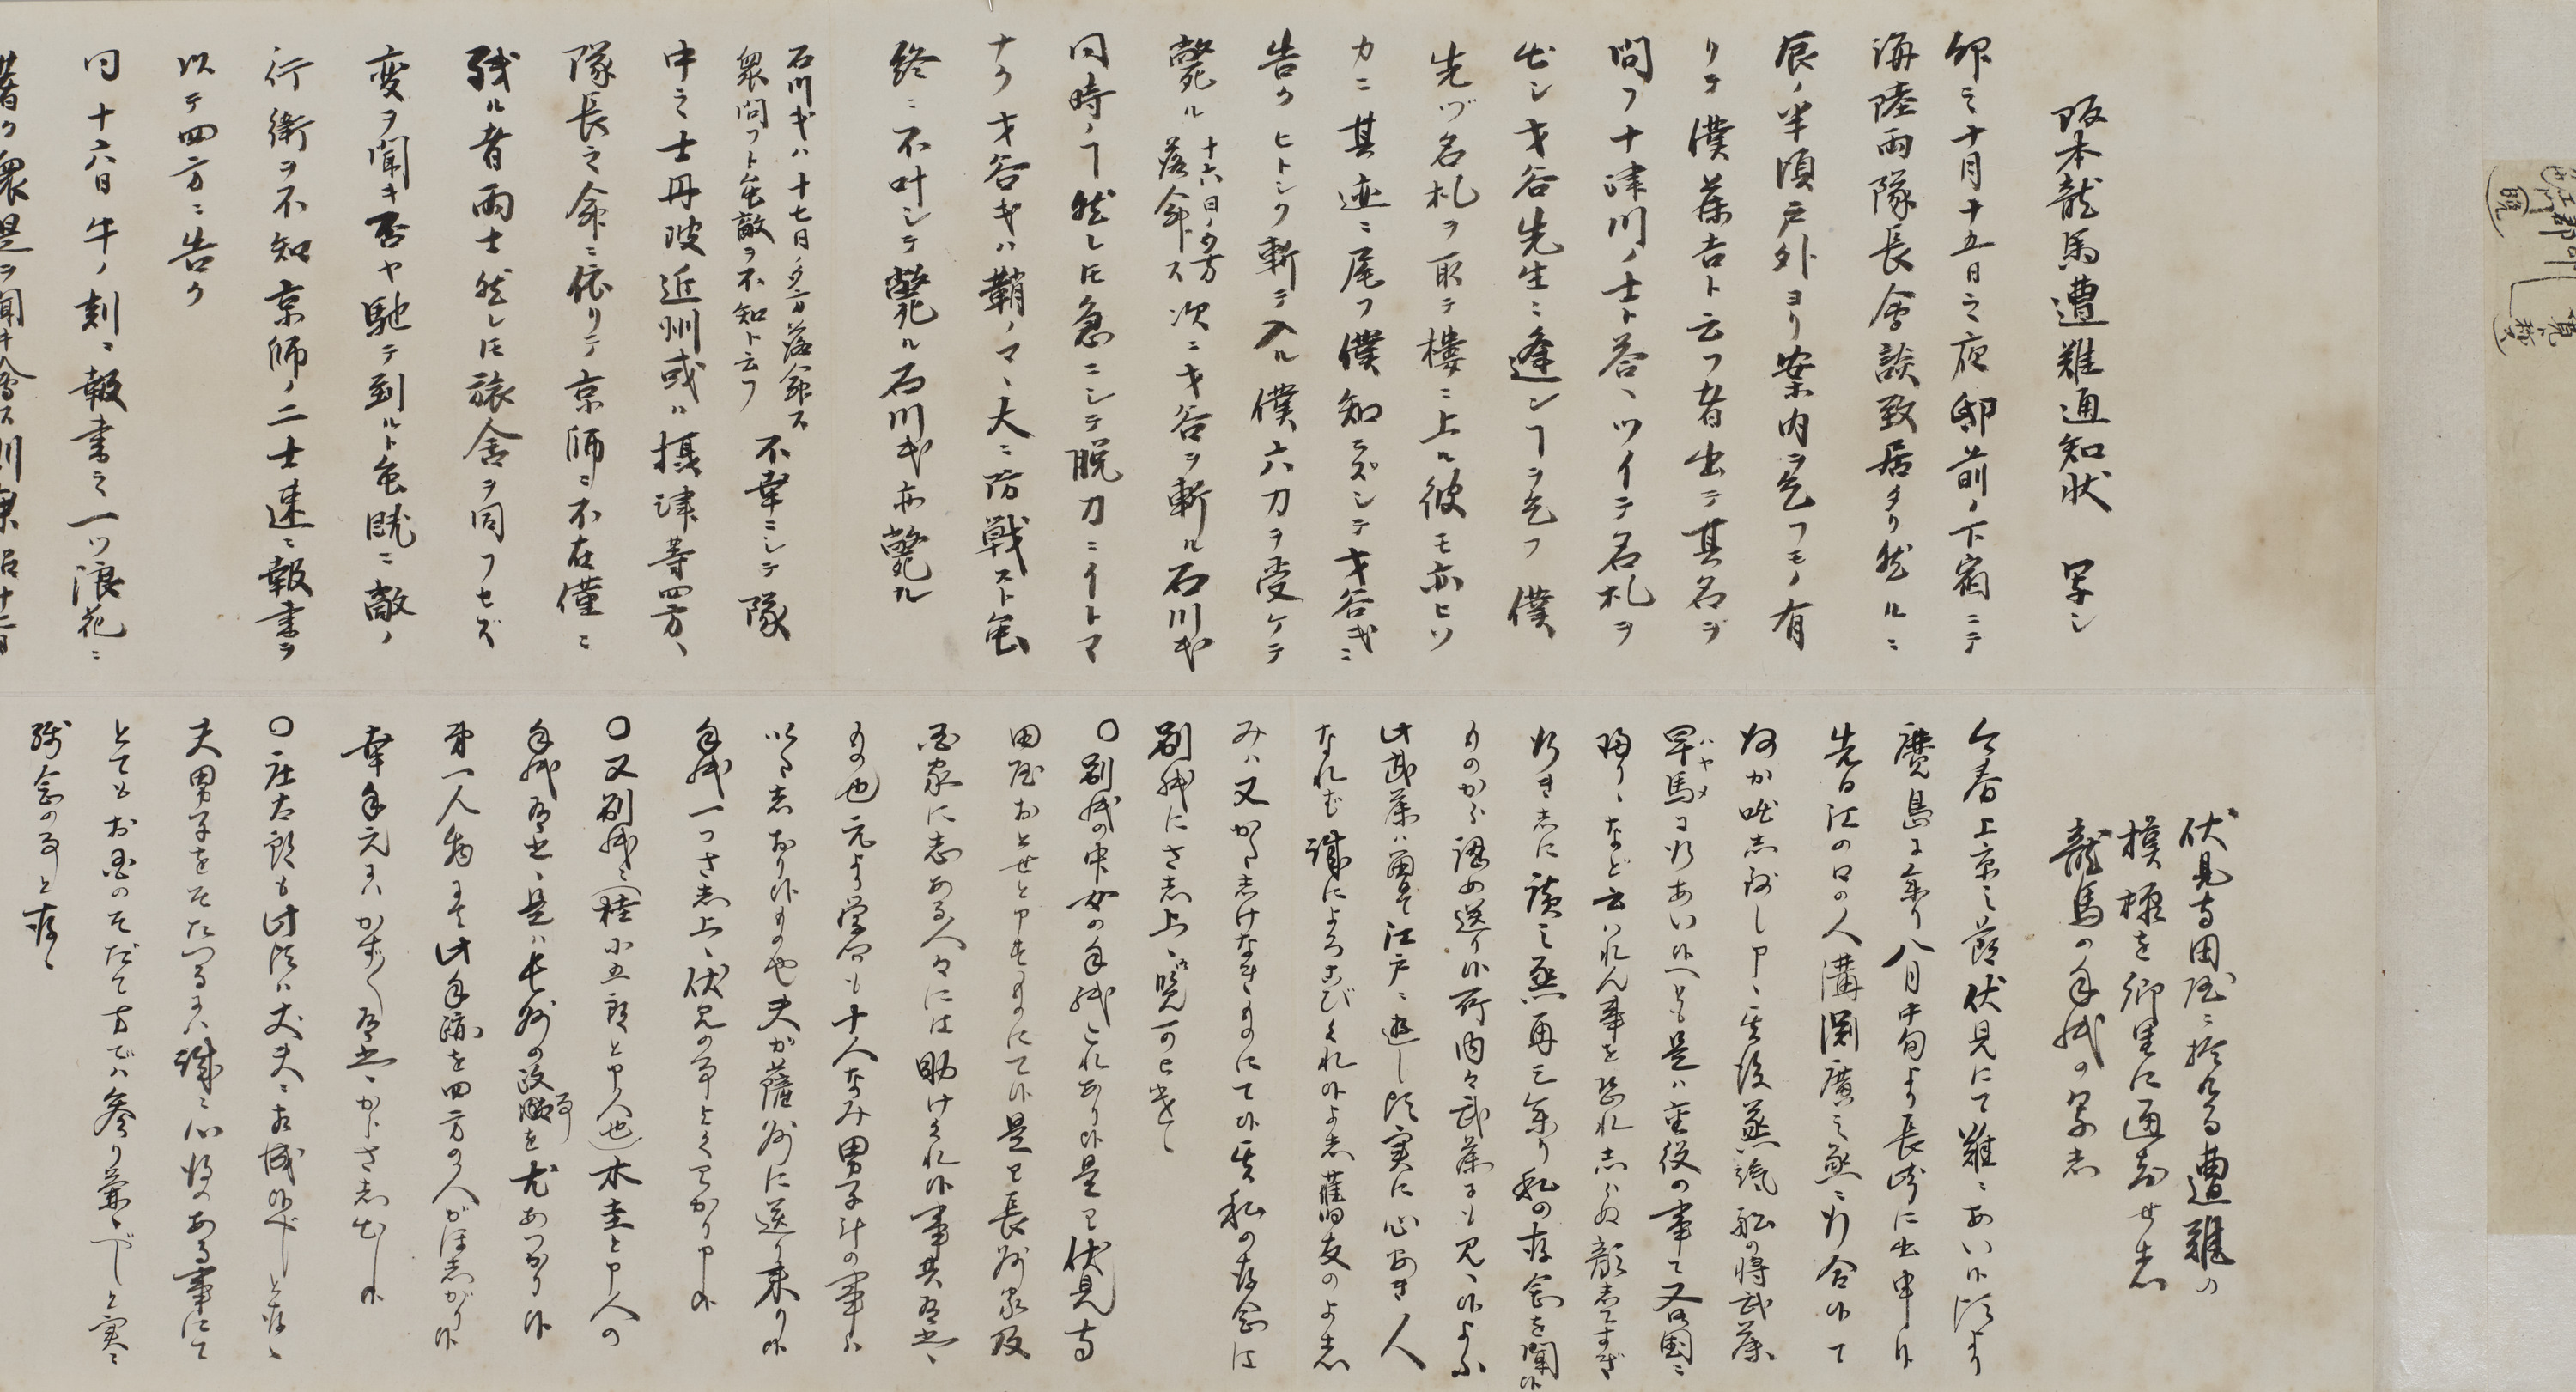 阪本龍馬遭難通知状 写シ
卯ノ十月十五日之夜邸前ノ下宿ニテ
海陸両隊長会談致居タリ然ルニ
辰ノ半頃戸外ヨリ案内ヲ乞フモノ有
リテ僕藤吉ト云フ者出テ其名ヲ
問フ十津川ノ士ト答、ツイテ名札ヲ
出シ才谷先生ニ逢ンヿヲ乞フ僕
先ヅ名札ヲ取テ楼ニ上ル彼モ亦ヒソ
カニ其迹ニ尾フ僕知ラズシテ才谷氏ニ
告クヒトシク斬テ入ル僕六刀ヲ受ケテ
斃ル
十六日ノ夕方
落命ス
次ニ才谷ヲ斬ル石川氏
同時ノヿ然レ𪜈急ニシテ脱刀ニイトマ
ナク才谷氏ハ鞘ノマヽ大ニ防戦スト雖
終ニ不叶シテ斃ル石川氏亦斃ル
石川氏ハ十七日ノ夕方落命ス
衆問フト雖敵ヲ不知ト云フ
不幸ニシテ隊
中之士丹波近州或ハ摂津等四方、
隊長之命ニ依リテ京師ニ不在僅ニ
残ル者両士然レ𪜈旅舎ヲ同フセズ
変ヲ聞キ否ヤ馳テ到ルト雖既ニ敵ノ
行衛ヲ不知京師ノ二士速ニ報書ヲ
以テ四方ニ告ク
同十六日午ノ刻ニ報書之一ツ浪花ニ
着ク衆是ヲ聞キ会ス
伏見寺田屋ニ於ける遭難の
模様を郷里に通知せし
龍馬の手紙の写し
今春上京之節伏見にて難ニあい候頃より
鹿島に参り八月中旬より長崎に出申候
先日江の口の人溝渕廣之丞ニ行合候て
何か咄し致し申、其後蒸汽船の将武藤
早馬
ハヤメ
に行あい候へども是ハ重役の事て又御国ニ
帰り、など云ハれん事を恐れしらぬ顔してすぎ
行きしに廣之丞再三参り私の存念を聞候
ものから認め送り候所内々武藤にも見、候よふ
此武藤ハ兼而江戸ニ遊し頃実に心安き人
なれむ誠によろこびくれ候よし旧友のよし
みハ又かたじけなきものにて候其私の存念は
別紙にさし上、御覧可被遣、
○別紙の中女の手紙これあり候是ハ伏見寺
田屋おとせと申ものにて候是ハ長州家及
国家に志ある人々には助けくれ候事共有之、
もの也元より学問も十人なみ男子斗の事ハ
いたしおり候もの也夫が薩州に送り来り候
手紙一つさし上、伏見の事よくわかり申候
○又別紙ニ（桂小五郎と申人也）木圭と申人の
手紙有之、是ハ長州の政事を尤あつかり候
第一人物にて此手跡を四方の人がほしがり候
幸手元にハかず〳〵有之、からさし出し候
○庄太郎も此頃ハ丈夫ニ相成候べしと存、
夫男子をそだつるにハ誠ニ心得のある事にて
とてもお国のそだて方でハ参り兼、べしと実ニ
残念の事と存、